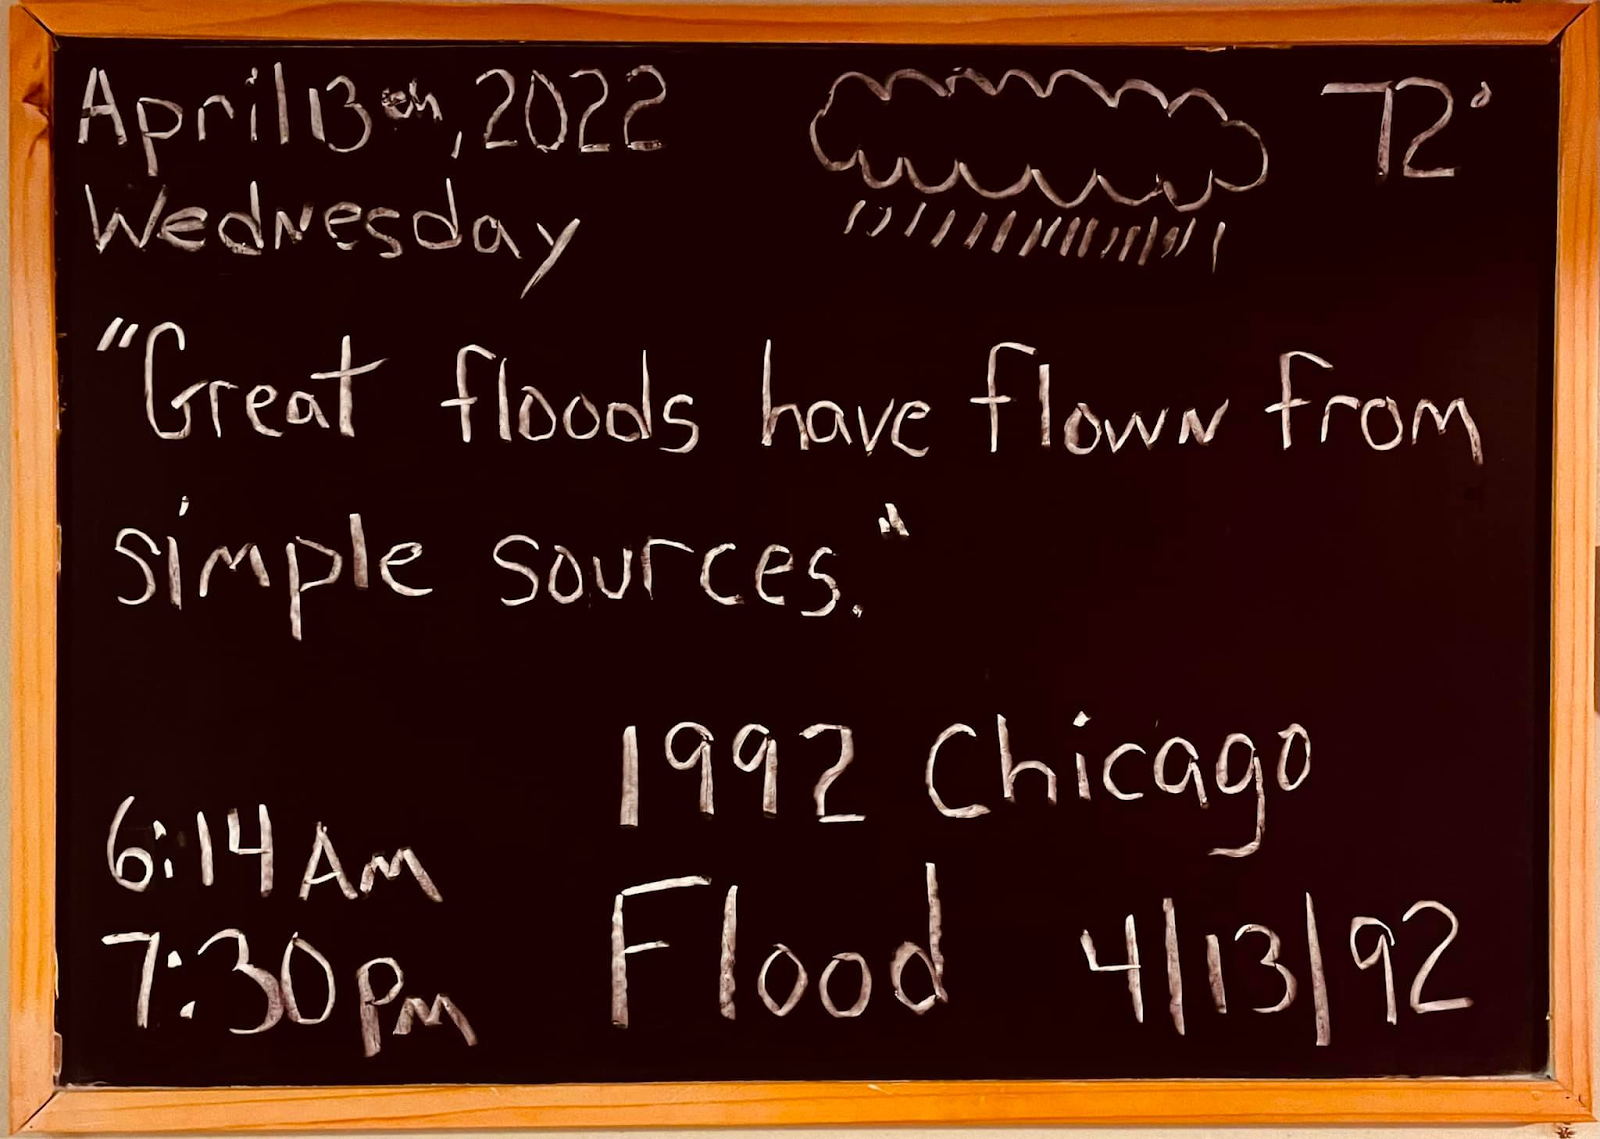 April 13th, 2022
72°
Wednesday
"Great floods have flown from
simple sources."
1992 Chicago
Flood 4/13/92
6:14 AM
7:30 PM